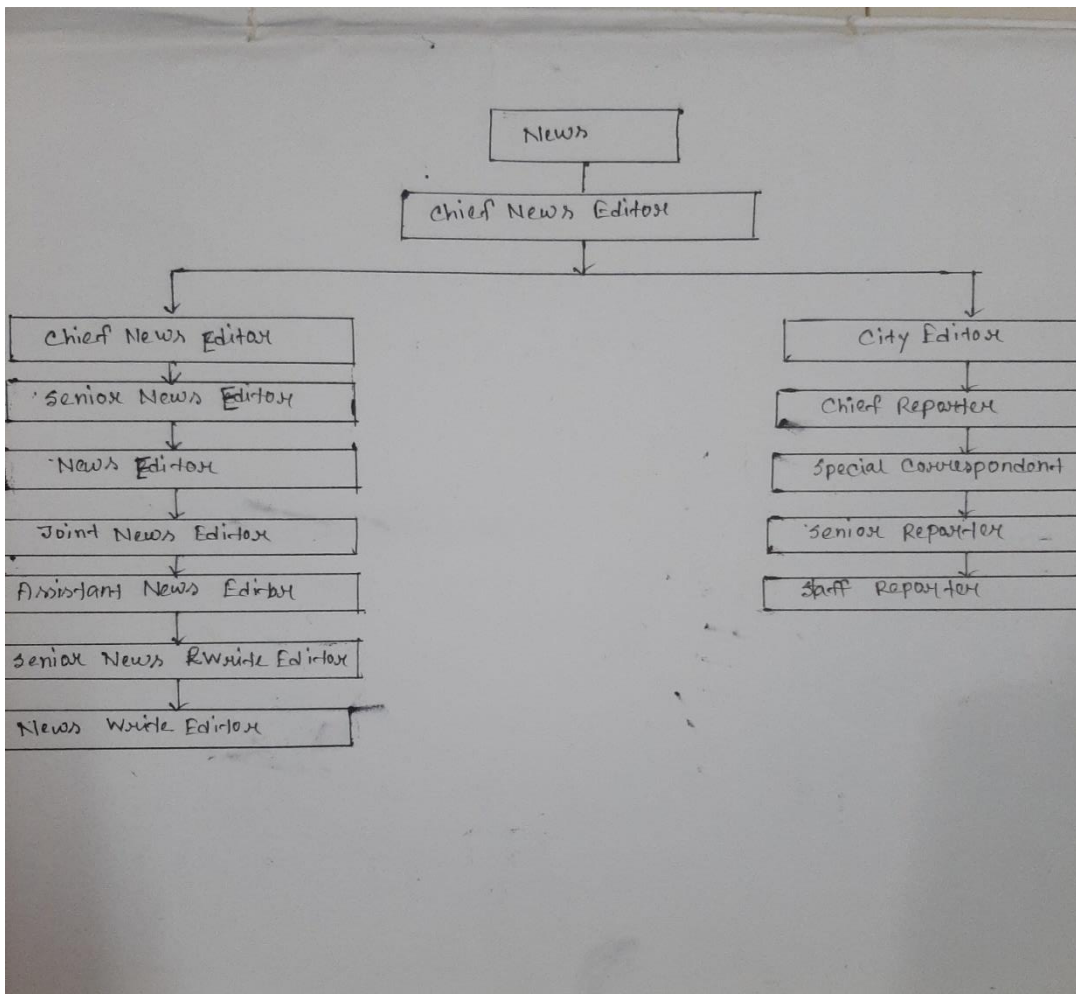 News
Chief News Editor
Chief News Editar
Senior News Editor
News Editor
Joint News Editor
Assistant News Editar
Senior News RWrite Editor
News Write Editor
City Editor
Chief Reporter
Special Correspondent
Senior Reporter
Staff Reporter